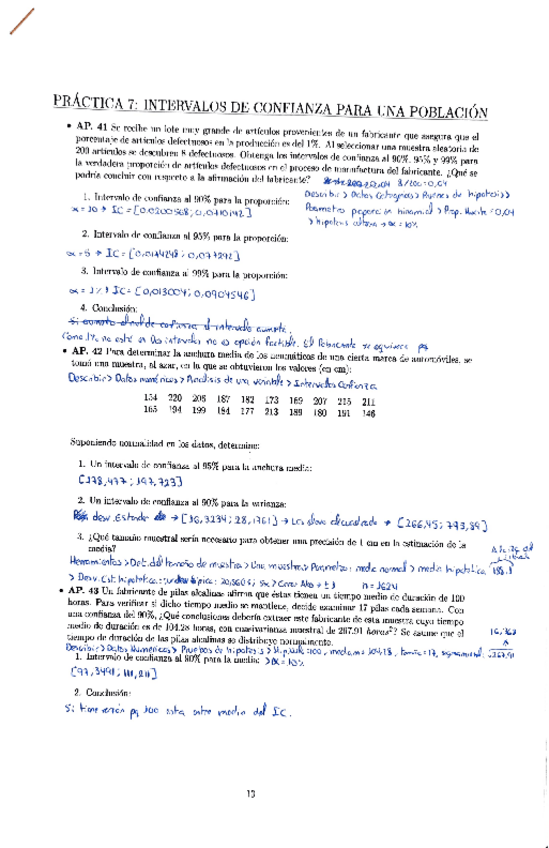 PRÁCTICA 7: INTERVALOS DE CONFIANZA PARA UNA POBLACIÓN
• AP. 41 Se recibe un lote muy grande de artículos provenientes de un fabricante que asegura que el
porcentaje de artículos defectuosos en la producción es del 1%. Al seleccionar una muestra aleatoria de
200 artículos se descubren 8 defectuosos. Obtenga los intervalos de confianza al 90%, 95% y 99% para
la verdadera proporción de artículos defectuosos en el proceso de manufactura del fabricante. ¿Qué se
podría concluir con respecto a la afirmación del fabricante?
Describir > Datos > Pruebas de hipótesis >
1. Intervalo de confianza al 90% para la proporción:
Parametro proporción binomial > Prop. Muestra = 0,04
α = 10 → IC =
> hipótesis → α = 10%
2. Intervalo de confianza al 95% para la proporción:
α = 5 → IC =
3. Intervalo de confianza al 99% para la proporción:
α = 1% → IC = [0,013004; 0,0904546]
4. Conclusión:
Como 1% no está en los intervalos no es opción factible. El fabricante se equivoca
• AP. 42 Para determinar la anchura media de los neumáticos de una cierta marca de automóviles, se
tomó una muestra, al azar, en la que se obtuvieron los valores (en cm):
Describir > Datos numéricos > Análisis de una variable > Intervalos Confianza
154 220 205 187 182 173 169 207 215 211
165 194 199 184 177 213 189 180 191 146
Suponiendo normalidad en los datos, determine:
1. Un intervalo de confianza al 95% para la anchura media:
[178,477; 197,723]
2. Un intervalo de confianza al 90% para la varianza:
desv. Estandar → [16,3234; 28,1761] → Los elevo al cuadrado → [266,45; 793,89]
3. ¿Qué tamaño muestral sería necesario para obtener una precisión de 1 cm en la estimación de la
media?
Herramientas > Det. del tamaño de muestra > Una muestra > Parametro: media normal > media hipotética
n = 1624
• AP. 43 Un fabricante de pilas alcalinas afirma que éstas tienen un tiempo medio de duración de 100
horas. Para verificar si dicho tiempo medio se mantiene, decide examinar 17 pilas cada semana. Con
una confianza del 90%, ¿Qué conclusiones debería extraer este fabricante de esta muestra cuyo tiempo
medio de duración es de 104.28 horas, con cuasivarianza muestral de 267.91 horas²? Se asume que el
tiempo de duración de las pilas alcalinas se distribuye normalmente.
Describir > Datos Numéricos > Pruebas de hipótesis >
1. Intervalo de confianza al 90% para la media: > α = 10%
[97,3491; 111,211]
2. Conclusión:
Si tiene razón pq 100 esta entre medio del IC.
13